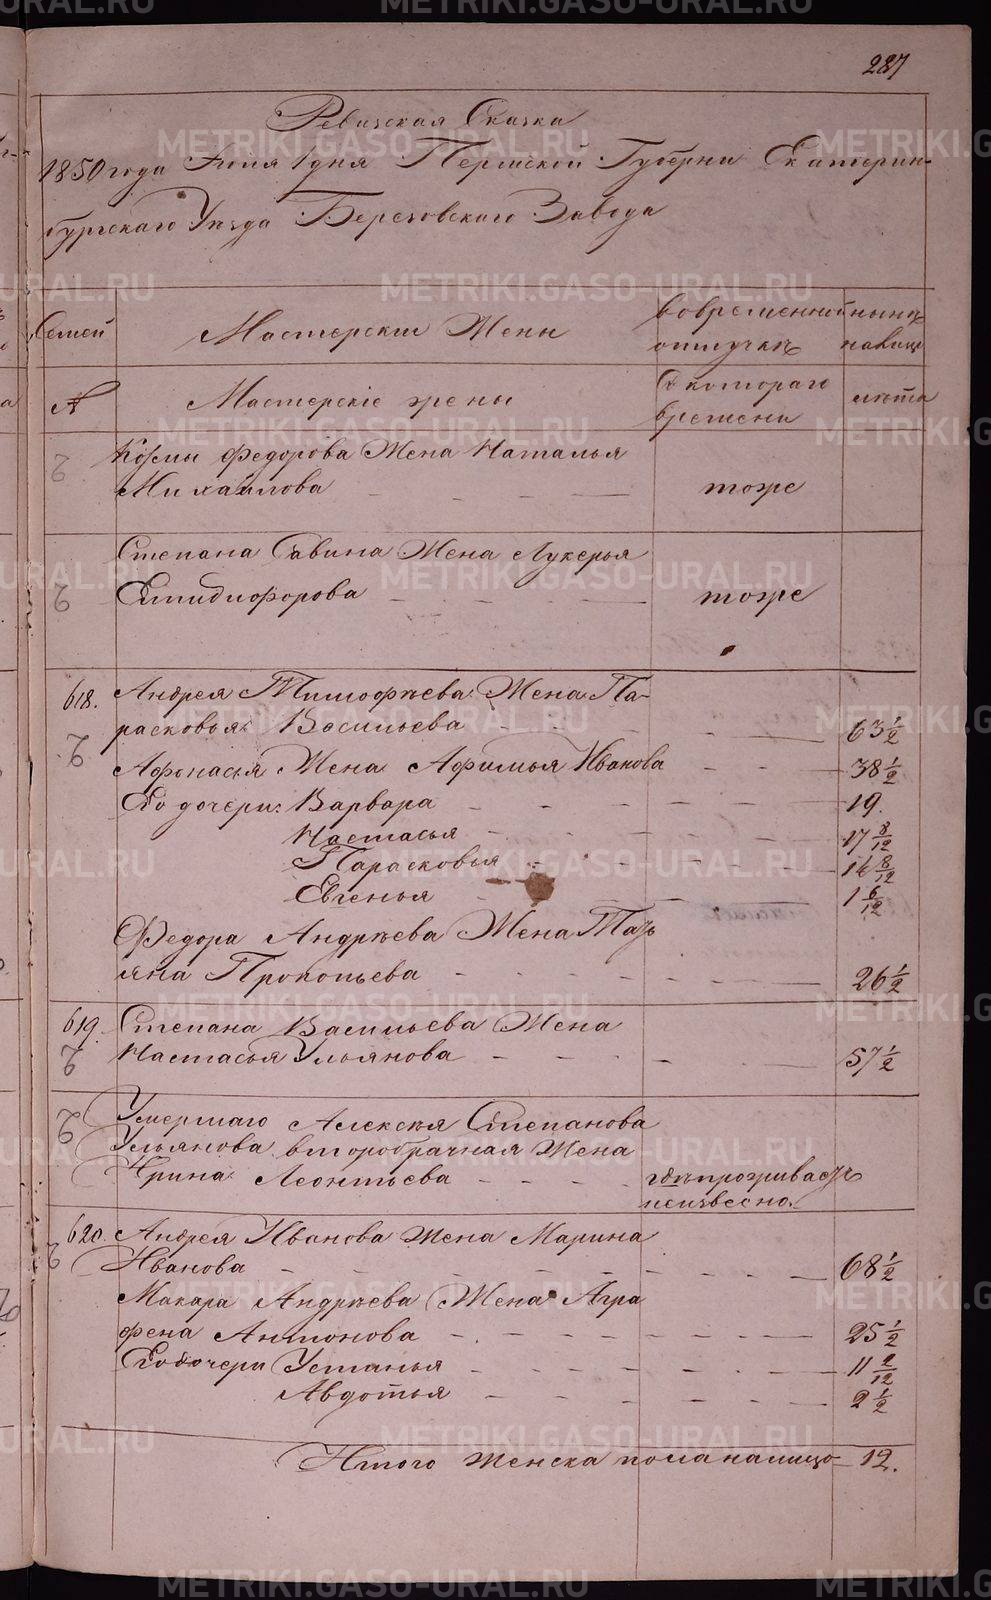 287
Ревизская Сказка
1850 года Июня 1 дня Пермской Губерни Екатерин-
бургскаго Уезда Березовскаго Завода
Семей
Мастерские Жены
вовременной
отлучкѣ
нынѣ
налицо
№
Мастерскіе жены
Скотораго
времени
лѣта
Козмы Федорова Жена Наталья
Михайлова
тоже
Степана Савина Жена Лукерья
Епидифорова
тоже
618. Андрея Тимофѣева Жена Па-
расковья Васильева 63 1/2
Афонасья Жена Афимья Иванова 38 1/2
Его дочери: Варвара 19.
Настасья 17 8/12
Парасковья 14 8/12
Евгенья 1 6/12
Федора Андрѣева Жена Тать
яна Прокопьева 26 1/2
619. Степана Васильева Жена
Настасья Ульянова 57 1/2
Умершаго Алексѣя Степанова
Ульянова второбрачная Жена
Ирина Леонтьева
гдѣ проживаетъ
неизвесно.
620. Андрея Иванова Жена Марина
Иванова 68 1/2
Макара Андрѣева Жена Агра
фена Антонова 25 1/2
Его дочери Устинья 11 2/12
Авдотья 2 1/2
Итого женска пола налицо 12.
METRIKI.GASO-URAL.RU